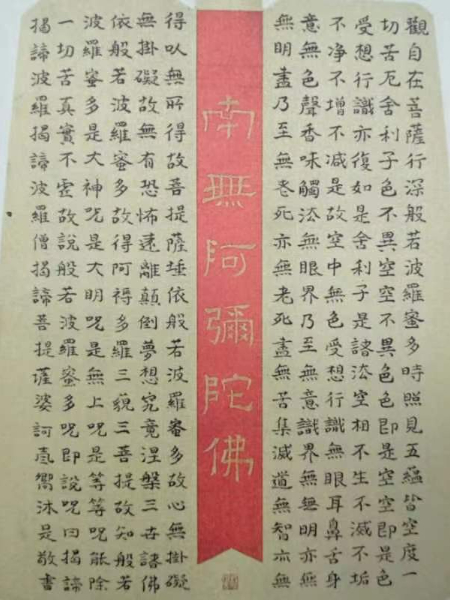 觀自在菩薩行深般若波羅蜜多時照見五蘊皆空度一
切苦厄舍利子色不異空空不異色色即是空空即是色
受想行識亦復如是舍利子是諸法空相不生不滅不垢
不净不增不減是故空中無色受想行識無眼耳鼻舌身
意無色聲香味觸法無眼界乃至無意識界無無明亦無
無明盡乃至無老死亦無老死盡無苦集滅道無智亦無
南無阿彌陀佛
得以無所得故菩提薩埵依般若波羅蜜多故心無掛礙
無掛礙故無有恐怖遠離顛倒夢想究竟涅槃三世諸佛
依般若波羅蜜多故得阿耨多羅三藐三菩提故知般若
波羅蜜多是大神呪是大明呪是無上呪是等等呪能除
一切苦真實不虛故說般若波羅蜜多呪即說呪曰揭諦
揭諦波羅揭諦波羅僧揭諦菩提薩婆訶沐是敬書